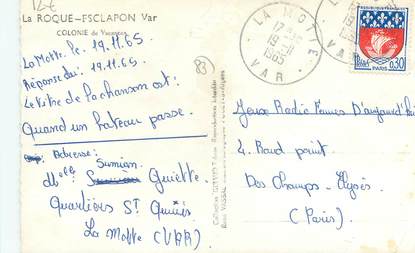 La ROQUE-ESCLAPON Var
COLONIE de Vacances
La Motte. le. 19.11.65
Réponse du: 19.11.65.
Le titre de la chanson est:
Quand un bateau passe.
Adresse:
Melle Sumian Guiette
Quartiers St
La Motte (VAR)
LA MOTTE
19-11
1965
VAR
0,30
PARIS
Jeux Radio Femmes d'aujourd'hui
2. Rond point
Des Champs-Elysés
(Paris).